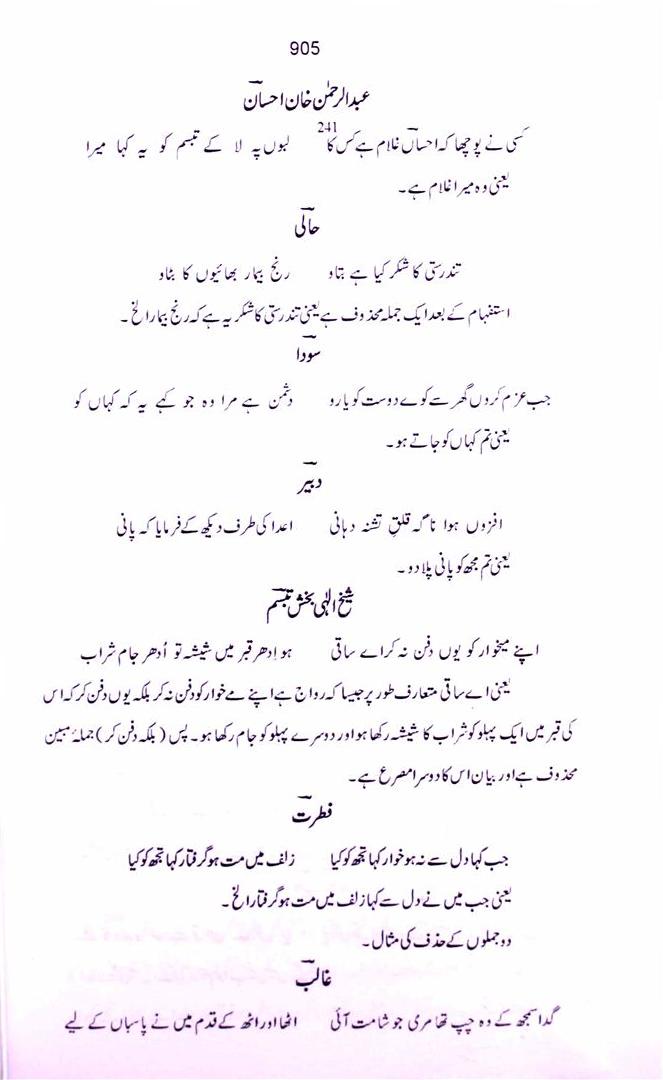 905
عبدالرحمٰن خان احسانؔ
کسی نے پوچھا کہ احساںؔ غلام ہے کس کا241 لبوں پہ لا کے تبسم کو یہ کہا میرا
یعنی وہ میرا غلام ہے۔
حالیؔ
تندرستی کا شکر کیا ہے بتاو رنج بیمار بھائیوں کا بٹاو
استفہام کے بعد ایک جملہ محذوف ہے یعنی تندرستی کا شکر یہ ہے کہ رنج بیمار الخ۔
سوداؔ
جب عزم کروں گھر سے کوے دوست کو یارو دشمن ہے مرا وہ جو کہے یہ کہ کہاں کو
یعنی تم کہاں کو جاتے ہو۔
دبیرؔ
افزوں ہوا ناگہ قلقِ تشنہ دہانی اعدا کی طرف دیکھ کے فرمایا کہ پانی
یعنی تم مجھ کو پانی پلا دو۔
شیخ الٰہی بخش تبسمؔ
اپنے میخوار کو یوں دفن نہ کر اے ساقی ہو اِدھر قبر میں شیشہ تو اُدھر جام شراب
یعنی اے ساقی متعارف طور پر جیسا کہ رواج ہے اپنے مے خوار کو دفن نہ کر بلکہ یوں دفن کر کہ اس
کی قبر میں ایک پہلو کو شراب کا شیشہ رکھا ہو اور دوسرے پہلو کو جام رکھا ہو۔ پس (بلکہ دفن کر) جملۂ مبین
محذوف ہے اور بیان اس کا دوسرا مصرع ہے۔
فطرتؔ
جب کہا دل سے نہ ہو خوار کہا تجھ کو کیا زلف میں مت ہو گرفتار کہا تجھ کو کیا
یعنی جب میں نے دل سے کہا زلف میں مت ہو گرفتار الخ۔
دو جملوں کے حذف کی مثال۔
غالبؔ
گدا سمجھ کے وہ چپ تھا مری جو شامت آئی اٹھا اور اٹھ کے قدم میں نے پاسباں کے لیے